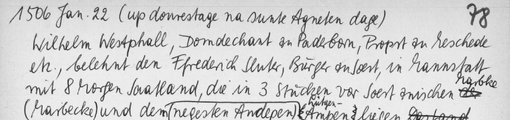 1506 Jan. 22 (up donrestage na sunte Agneten dage) 78
Wilhelm Westphall, Domdechant zu Paderborn, Propst zu Meschede
etc., belehnt den Ffrederich Sluter, Bürger zu Soest, in Mannstatt
mit 8 Morgen Saatland, die in 3 Stücken vor Soest zwischen Marbke
(Marbecke) und dem (negesten Andepen) Lütgen- Ampen liegen